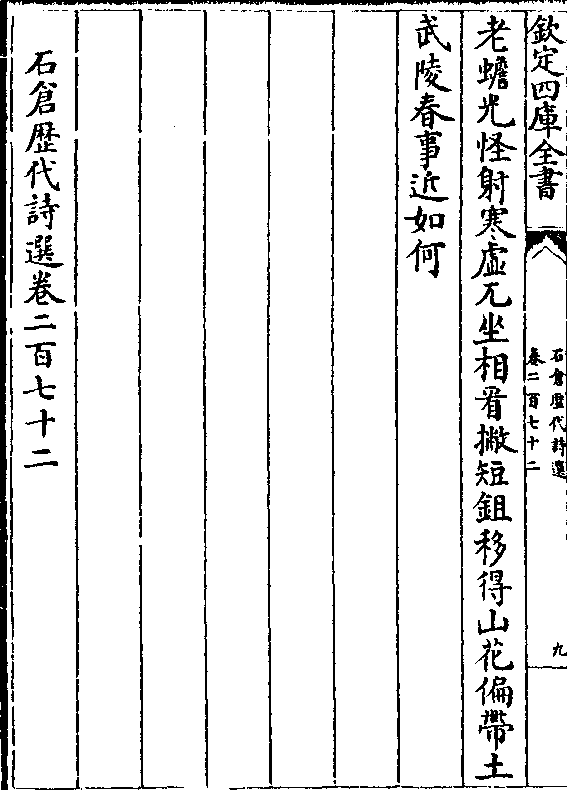 欽定四庫全書
石倉歴代詩選
卷二百七十二
九
老蟾光怪射寒虛兀坐相看撇短鉏移得山花偏帶土
武陵春事近如何
石倉歴代詩選卷二百七十二